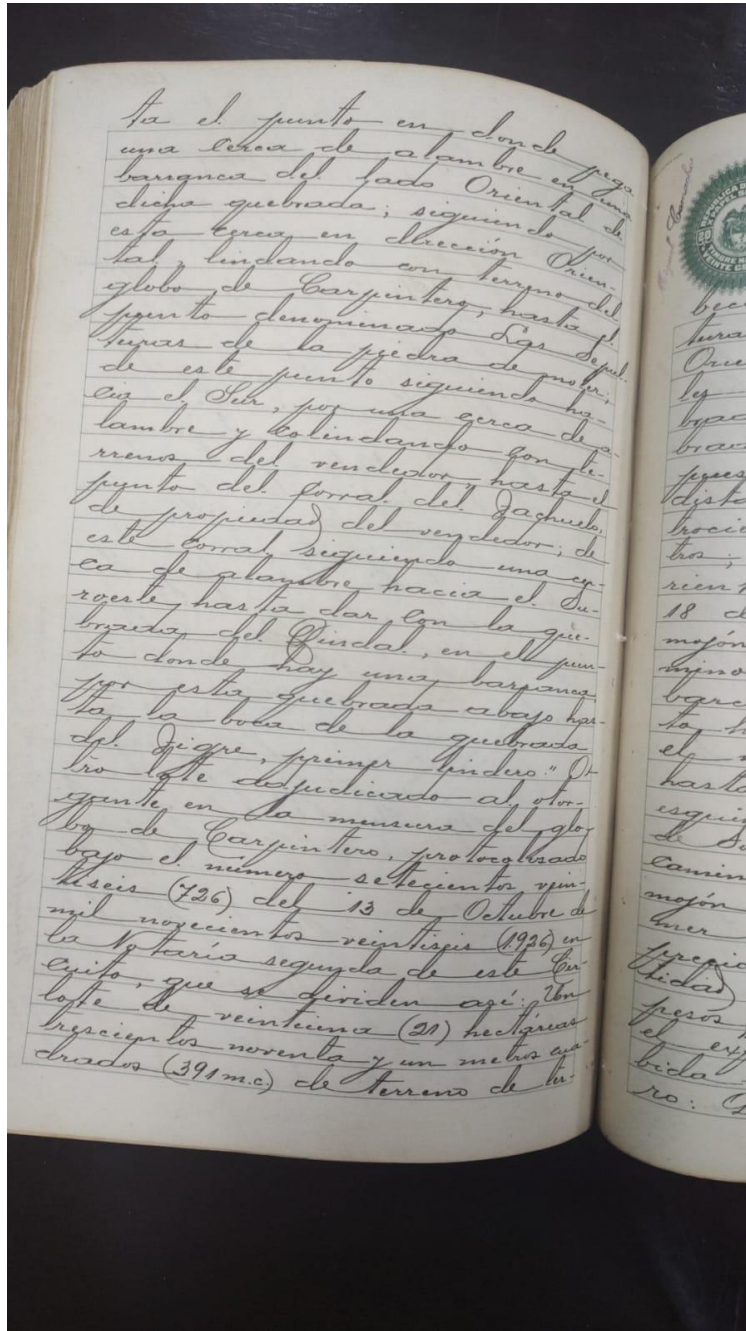 ta el punto en donde pega
una cerca de alambre en una
barranca del lado Oriental de
dicha quebrada; siguiendo por
esta cerca en dirección Orien-
tal, lindando con terreno del
globo de Carpintero, hasta el
punto denominado Las Sepul-
turas de la piedra de moler;
de este punto siguiendo ha-
cia el Sur, por una cerca de a-
lambre y colindando con te-
rrenos del vendedor, hasta el
punto del corral del
de propiedad del vendedor; de
este corral siguiendo una cer-
ca de alambre hacia el Su-
roeste, hasta dar con la que-
brada del Dindal, en el pun-
to donde hay una barranca
por esta quebrada abajo has-
ta la boca de la quebrada
del Tigre, primer lindero." O-
tro lote adjudicado al otor-
gante en la mensura del glo-
bo de Carpintero, protocolizado
bajo el número setecientos vein-
tiseis (726) del 13 de Octubre de
mil novecientos veintiseis (1926) en
la Notaría segunda de este Cir-
cuito, que se dividen así: Un
lote de veintiuna (21) hectáreas
trescientos noventa y un metros cua-
drados (391 m.c.) de terreno de ter-
tura
Orie
ley
pues
dista
brocio
tros;
rien
18 d
mojón
mino
barc
ta h
el
hasta
esquin
de Su
camin
mojón
mer
precio
tidad
pesos
el exp
bida
ro: